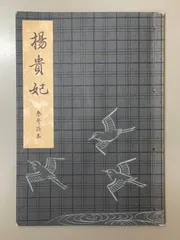 楊貴妃
参考謡本